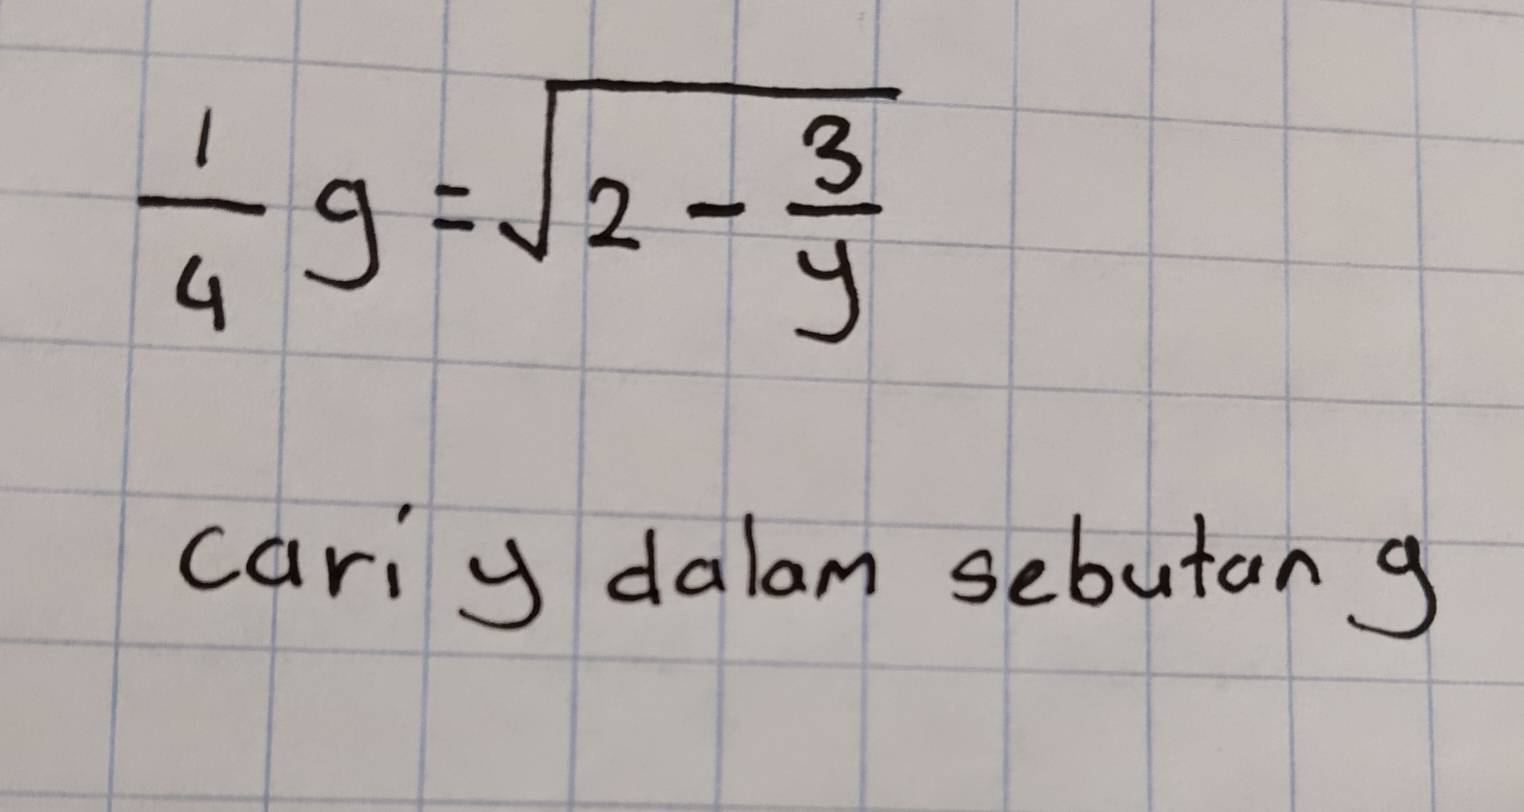 1/4 g = √(2 - 3/y)
cari y dalam sebutan g